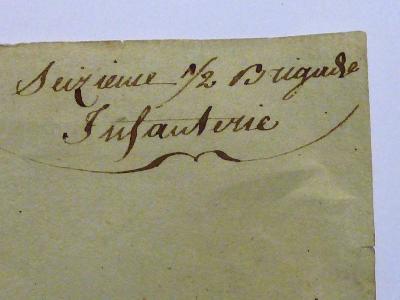 Seizieme 1/2 Brigade
Infanterie